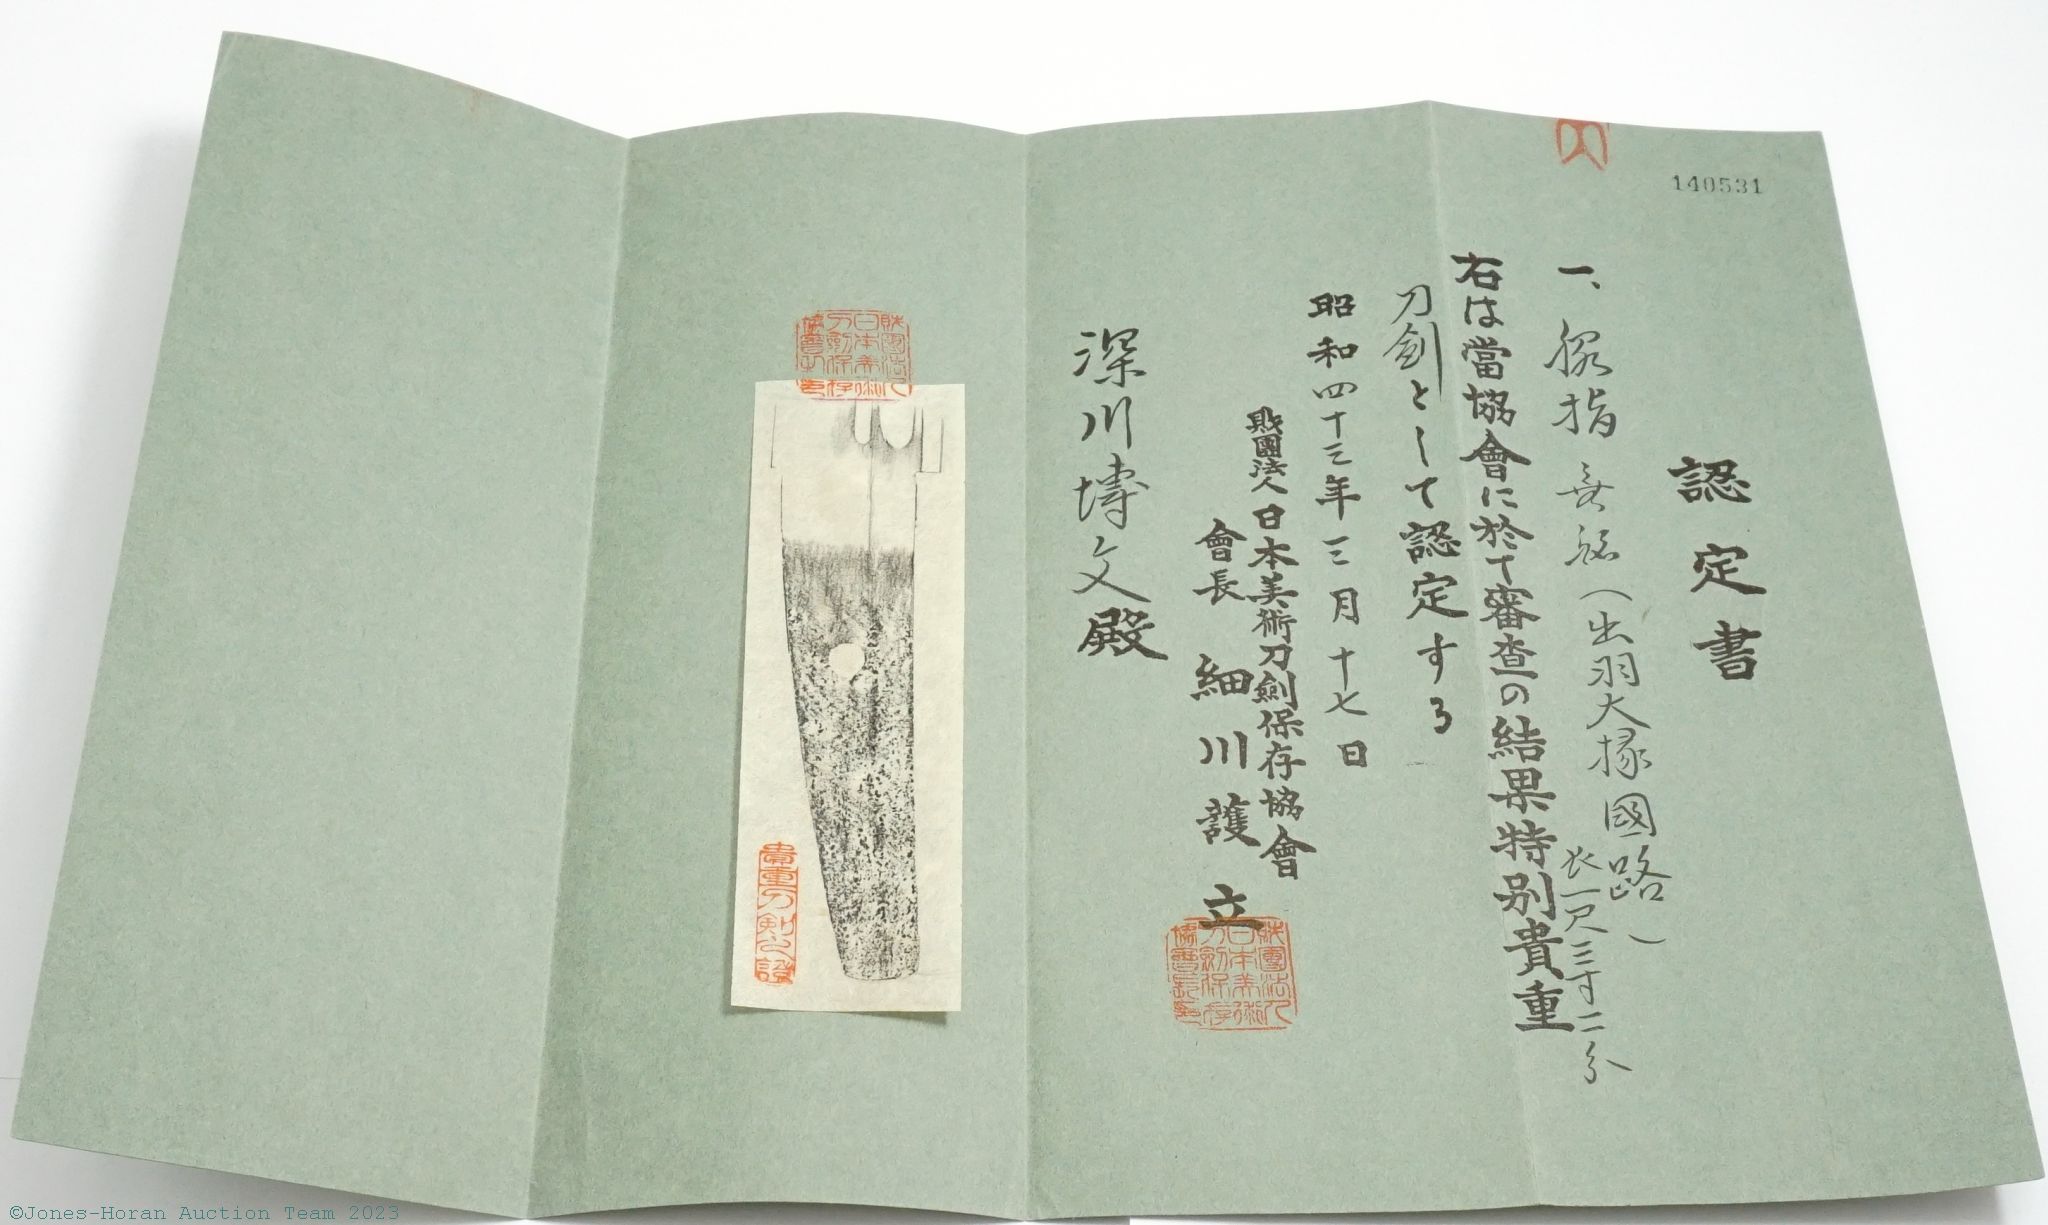 140531
認定書
一、脇指 無銘(出羽大掾國路)
長一尺三寸二分
右は當協會に於て審査の結果特別貴重
刀劍として認定する
昭和四十三年三月十七日
財團法人日本美術刀劍保存協會
會長 細川護立
財團法人日本美術刀劍保存協會長印
深川博文殿
貴重刀剣之證
©Jones-Horan Auction Team 2023